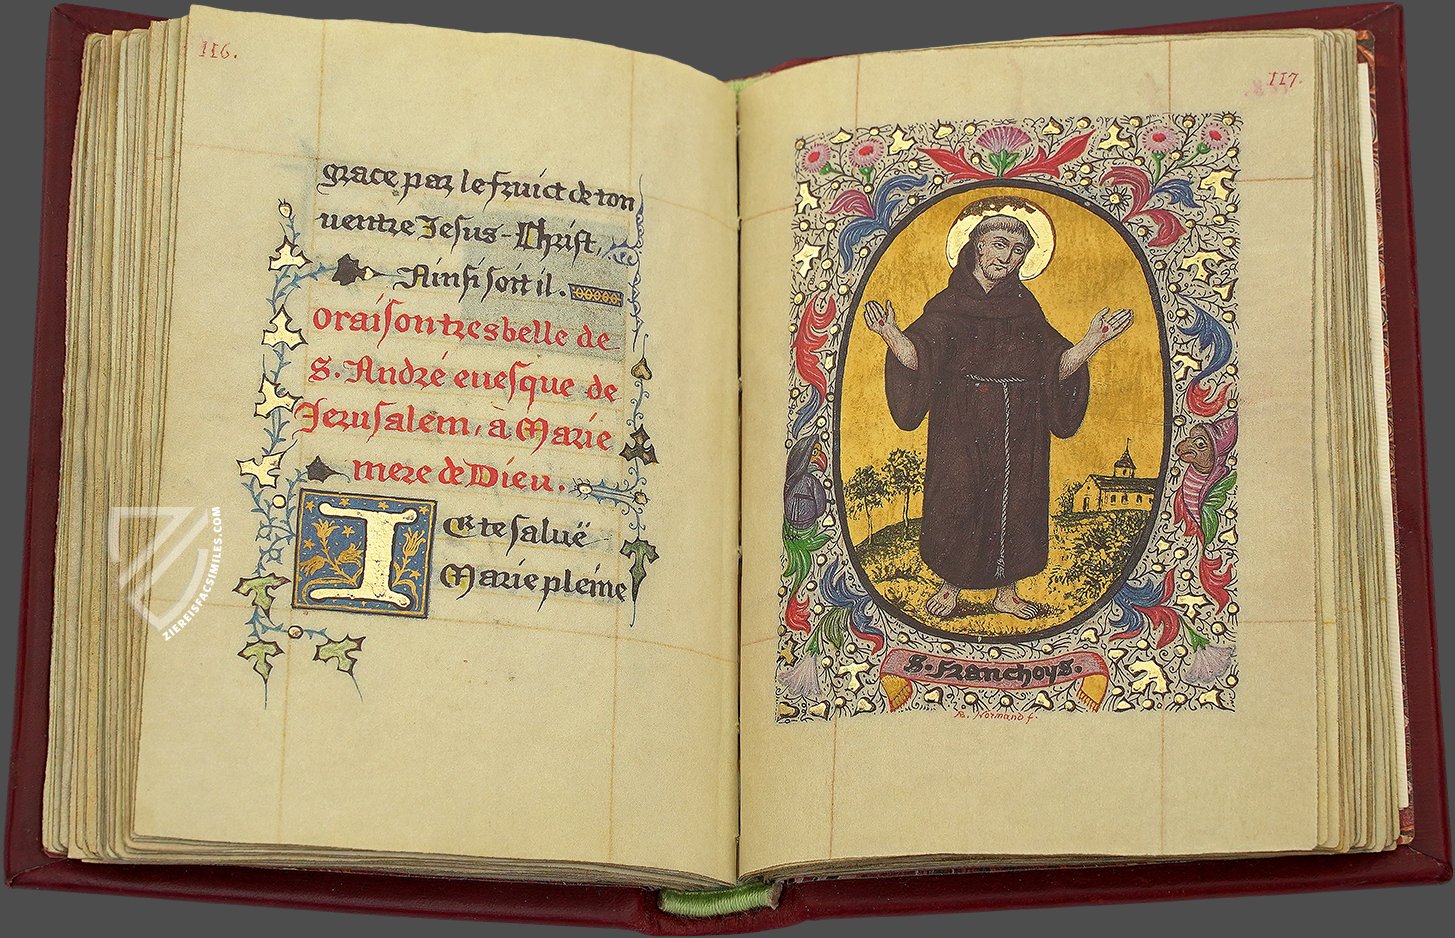 116.
grace par le fruict de ton
ventre Jesus-Christ,
Ainsi soit il.
Oraison tres belle de
S. André evesque de
Jerusalem, à Marie
mere de Dieu.
IE te saluë
Marie pleine
ZIEREISFACSIMILES.COM
117.
S. Franchoys.
Normand f.